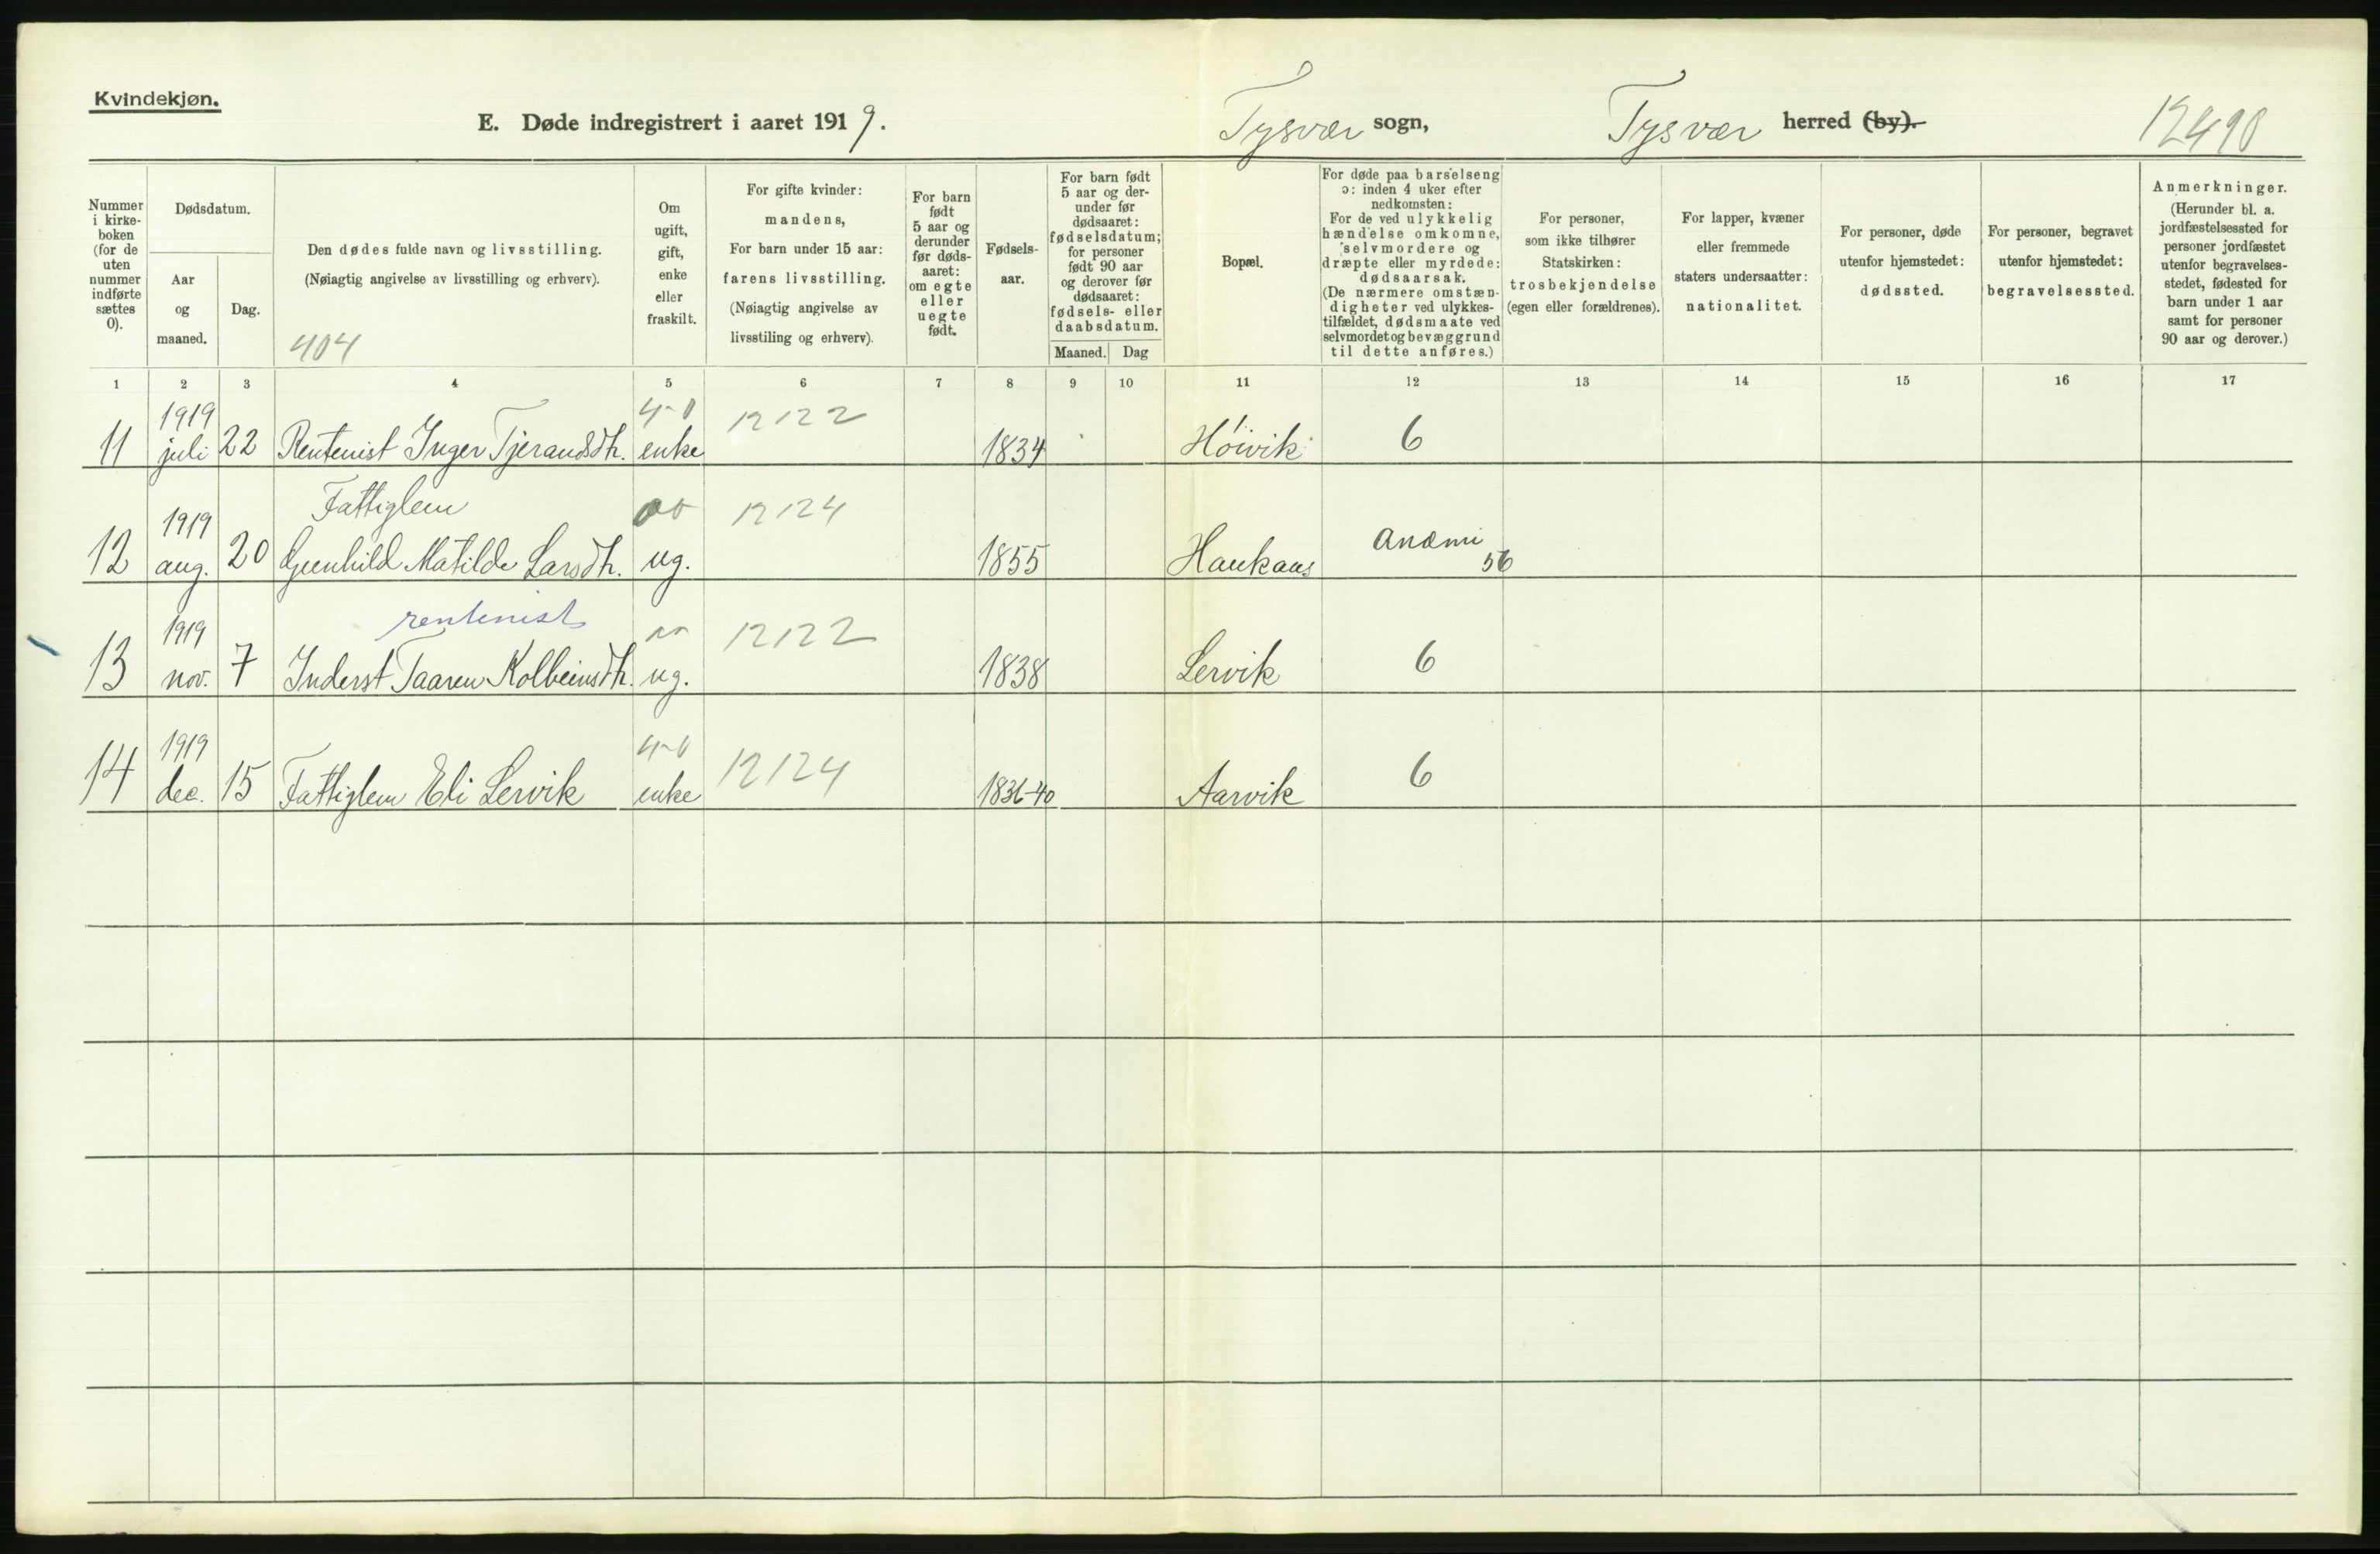 Kvindekjøn.
E. Døde indregistrert i aaret 1919. Tysvær sogn, Tysvær herred (by). 12490
Nummer i kirke-boken (for de uten nummer indførte sættes 0).
Dødsdatum.
Aar og maaned.
Dag.
Den dødes fulde navn og livsstilling.
(Nøiagtig angivelse av livsstilling og erhverv).
404
Om ugift, gift, enke eller fraskilt.
For gifte kvinder:
mandens,
For barn under 15 aar:
farens livsstilling.
(Nøiagtig angivelse av
livsstiling og erhverv).
For barn
født
5 aar og
derunder
før døds-
aaret:
om egte
eller
uegte
født.
Fødsels-
aar.
For barn født
5 aar og der-
under før
dødsaaret:
fødselsdatum;
for personer
født 90 aar
og derover før
dødsaaret:
fødsels- eller
daabsdatum.
Maaned. Dag
Bopæl.
For døde paa barselseng
ɔ: inden 4 uker efter
nedkomsten:
For de ved ulykkelig
hændelse omkomne,
selvmordere og
dræpte eller myrdede:
dødsaarsak.
(De nærmere omstæn-
digheter ved ulykkes-
tilfældet, dødsmaate ved
selvmordet og bevæggrund
til dette anføres.)
For personer,
som ikke tilhører
Statskirken:
trosbekjendelse
(egen eller forældrenes).
For lapper, kvæner
eller fremmede
staters undersaatter:
nationalitet.
For personer, døde
utenfor hjemstedet:
dødssted.
For personer, begravet
utenfor hjemstedet:
begravelsessted.
Anmerkninger.
(Herunder bl. a.
jordfæstelsessted for
personer jordfæstet
utenfor begravelses-
stedet, fødested for
barn under 1 aar
samt for personer
90 aar og derover.)
1 2 3 4 5 6 7 8 9 10 11 12 13 14 15 16 17
1919 12122
11 juli 22 Rentenist Inger Tjerandsdtr. enke 1834 Høivik 6
1919 Fattiglem 12124 Anæmi
12 aug. 20 Gunhild Matilde Larsdtr. ug. 1855 Haukaas 56
1919 rentenist 12122
13 nov. 7 Inderst Taaren Kolbeinsdtr. ug. 1838 Lervik 6
1919 12124
14 dec. 15 Fattiglem Eli Lervik enke 1836-40 Aarvik 6